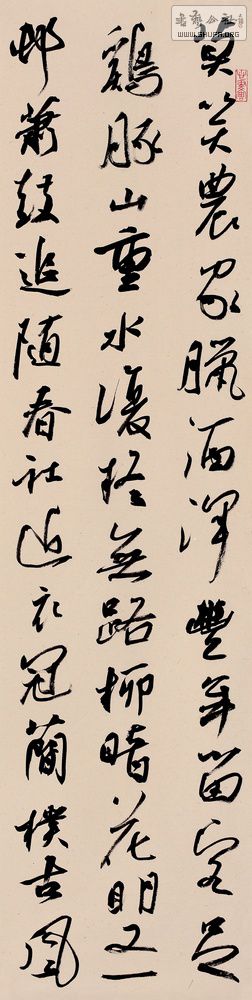 莫笑農家臘酒渾豐年留客足
鷄豚山重水復疑無路柳暗花明又一
邨簫鼓追隨春社近衣冠簡樸古風
www.SHUFA.ORG